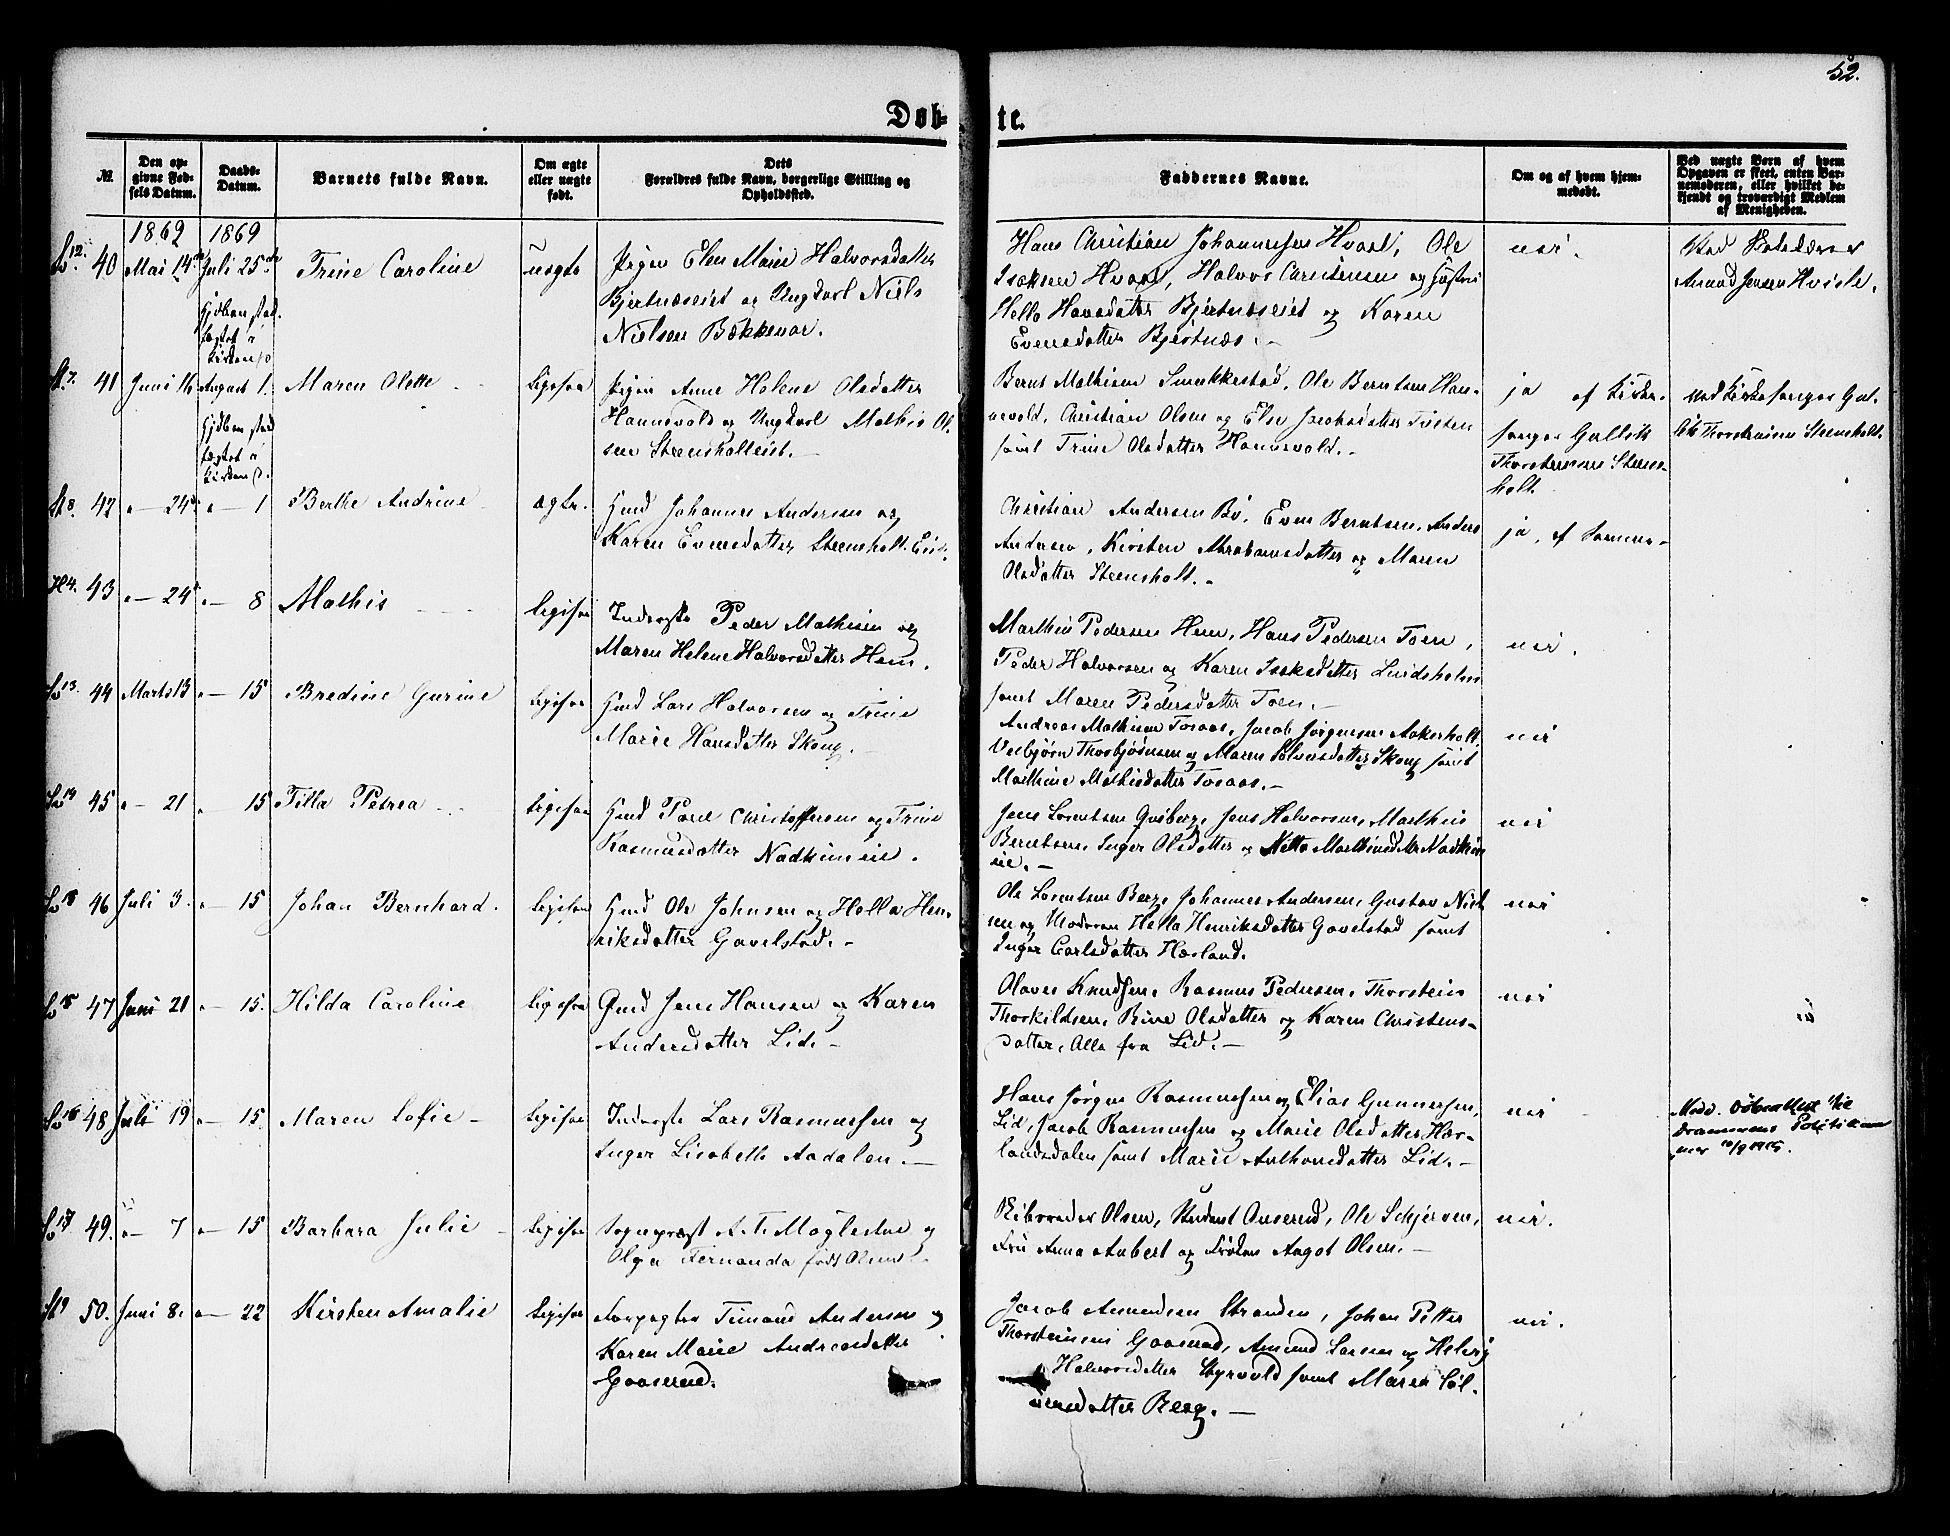 52.
Døb-
te.
№
Den op-
givne Fød-
sels Datum.
Daabs-
Datum.
Barnets fulde Navn.
Om ægte
eller uægte
født.
Dets
Forældres fulde Navn, borgerlige Stilling og
Opholdssted.
Faddernes Navne.
Om og af hvem hjem-
medøbt.
Ved uægte Børn af hvem
Opgaven er skeet, enten Bar-
nemoderen, eller hvilket be-
kjendt og troværdigt Medlem
af Menigheden.
1869 1869
40 Mai 14 Juli 25 Trine Caroline uægte
Pigen Elen Marie Halvorsdatter
Bjertnæseiet og Ungkarl Niels
Nielsen Bækkevar.
Hans Christian Johannessen Hvaal, Ole
Isaksen Hvaal, Halvor Christensen og
Helle Hansdatter Bjertnæseiet og Karen
Evensdatter Bjertnæs.
nei.
Amund Jensen Hvisle.
41 Juni 16 August 1. Maren Olette ligesaa
Pigen Anne Helene Olsdatter
Hannevold og Ungkarl Mathis Ol-
sen Steensholteiet.
Bernt Mathisen Smukkestad, Ole Berntsen Han-
nevold, Christian Olsen og Else Jacobsdatter Tvisten
samt Trine Olsdatter Hannevold.
ja af Kirke-
sanger Gullik
Thorsteinsen Steens-
holt
ved Kirkesanger Gul-
lik Thorsteinsen Steensholt.
42 24 1 Berthe Andrine ægte.
Gmd Johannes Andersen og
Karen Evensdatter Steensholt Eie.
Christian Andersen Bö, Even Berntsen, Anders
Andersen, Kirsten Abrahamsdatter og Maren
Olsdatter Steensholt.
ja, af samme
43 24 8 Mathis ligesaa
Inderste Peder Mathisen og
Maren Helene Halvorsdatter Hem.
Mathis Pedersen Hem, Hans Pedersen Toen,
Peder Halvorsen og Karen Isaksdatter Lindsholm
samt Maren Pedersdatter Toen.
nei.
44 Marts 13 15 Bredine Gurine ligesaa
Gmd Lars Halvorsen og Trine
Marie Hansdatter Skoug.
Andreas Mathisen Toraas, Jacob Jörgensen Aakerholt
Veibjørn Thorbjørnsen og Maren Sølvensdatter Skoug samt
Mathine Mathisdatter Toraas.
nei
45 21 15 Tilla Petrea ligesaa
Gmd Povel Christoffersen og Trine
Rasmusdatter Nadkimeie.
Jens Lorentsen Gusberg, Jens Halvorsen, Mathis
Berntsen, Inger Olsdatter og Nette Mathisd
eie.
nei
46 Juli 3. 15 Johan Bernhard. ligesaa
Gmd Ole Johnsen og Helle Hen-
riksdatter Gavelstad.
Ole Lorentsen Berg, Johannes Andersen, Gustav Niel-
sen og Moderen Helle Henriksdatter Gavelstad samt
Inger Carlsdatter Hærland.
nei
47 Juni 21 15. Hilda Caroline ligesaa
Gmd Jens Hansen og Karen
Andersdatter Lid.
Olaves Knudsen, Rasmus Pedersen, Thorstein
Thorkildsen, Rine Olsdatter og Karen Christens-
datter, Alle fra Lid.
nei
48 Juli 19 15. Maren Sofie ligesaa
Inderste Lars Rasmussen og
Inger Lisabeth Aadalen.
Hans Jörgen Rasmussen og Elias Gunnersen,
Lid, Jacob Rasmussen og Marie Olsdatter Hær-
landsdalen samt Marie Anthonsdatter Lid.
nei
Medd. Döbeattest til
Drammens Politikam
mer
49. 7 15 Barbara Julie ligesaa
Sognepræst A. T. Møglestue og
Olga Fernanda født Olsen.
Ribvender Olsen, Student Anserud, Ole Schjerven,
Fru Anna Aubert og Frøken Aagot Olsen.
nei.
50. Juni 8. 22 Kirsten Amalie ligesaa
Timand Andersen og
Karen Marie Andreasdatter
Gaaserud.
Jacob Amundsen Stranden, Johan Petter
Thorsteinsen Gaaserud, Amund Larsen og Helvig
Halvorsdatter Styrvold samt Maren Söl-
vensdatter Berg.
nei.